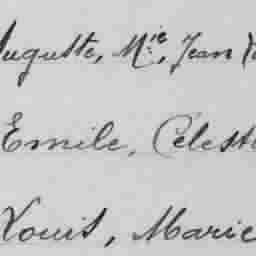 Auguste, Mie, Jean
Emile, Célest
Louis, Marie